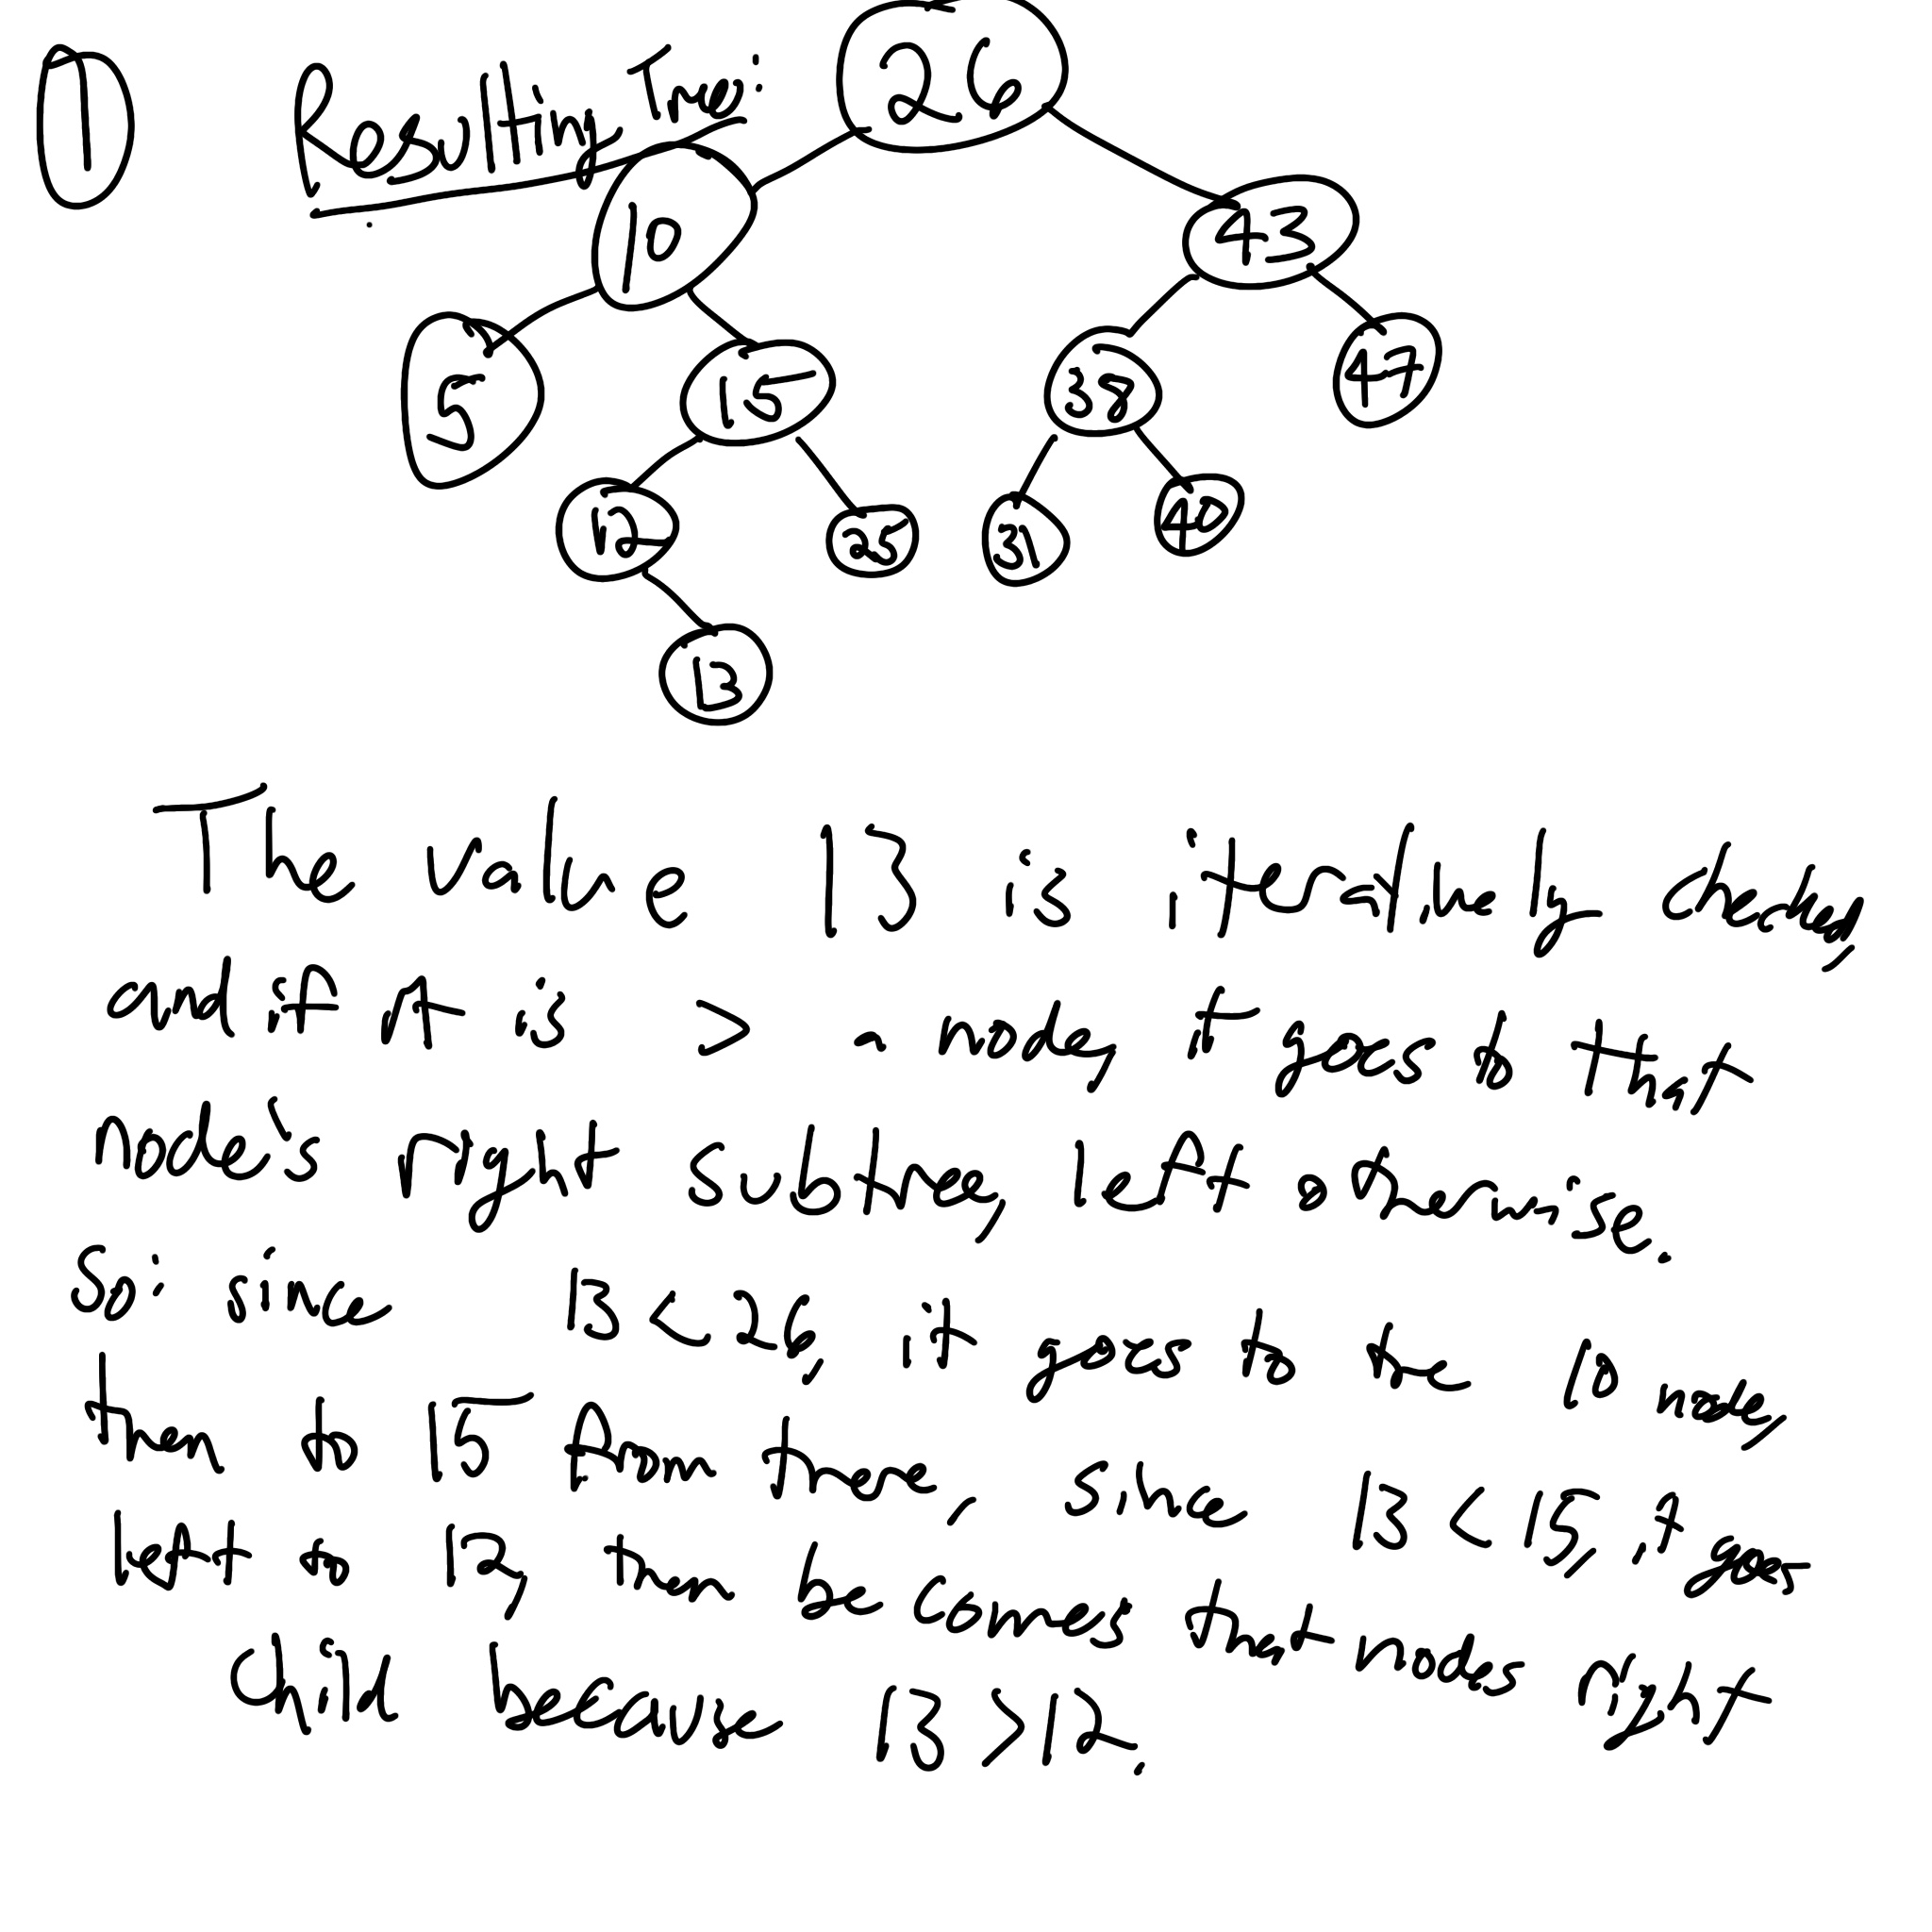 1 Resulting Tree:
26
10 43
5 15 38 47
12 25 31 40
13
The value 13 is iteratively checked,
and if it is > a node, it goes to that
node's right subtree, left otherwise.
So: since 13 < 26, it goes to the 10 node,
then to 15 from there, since 13 < 15, it goes
left to 12, then becomes that nodes right
child because 13 > 12.